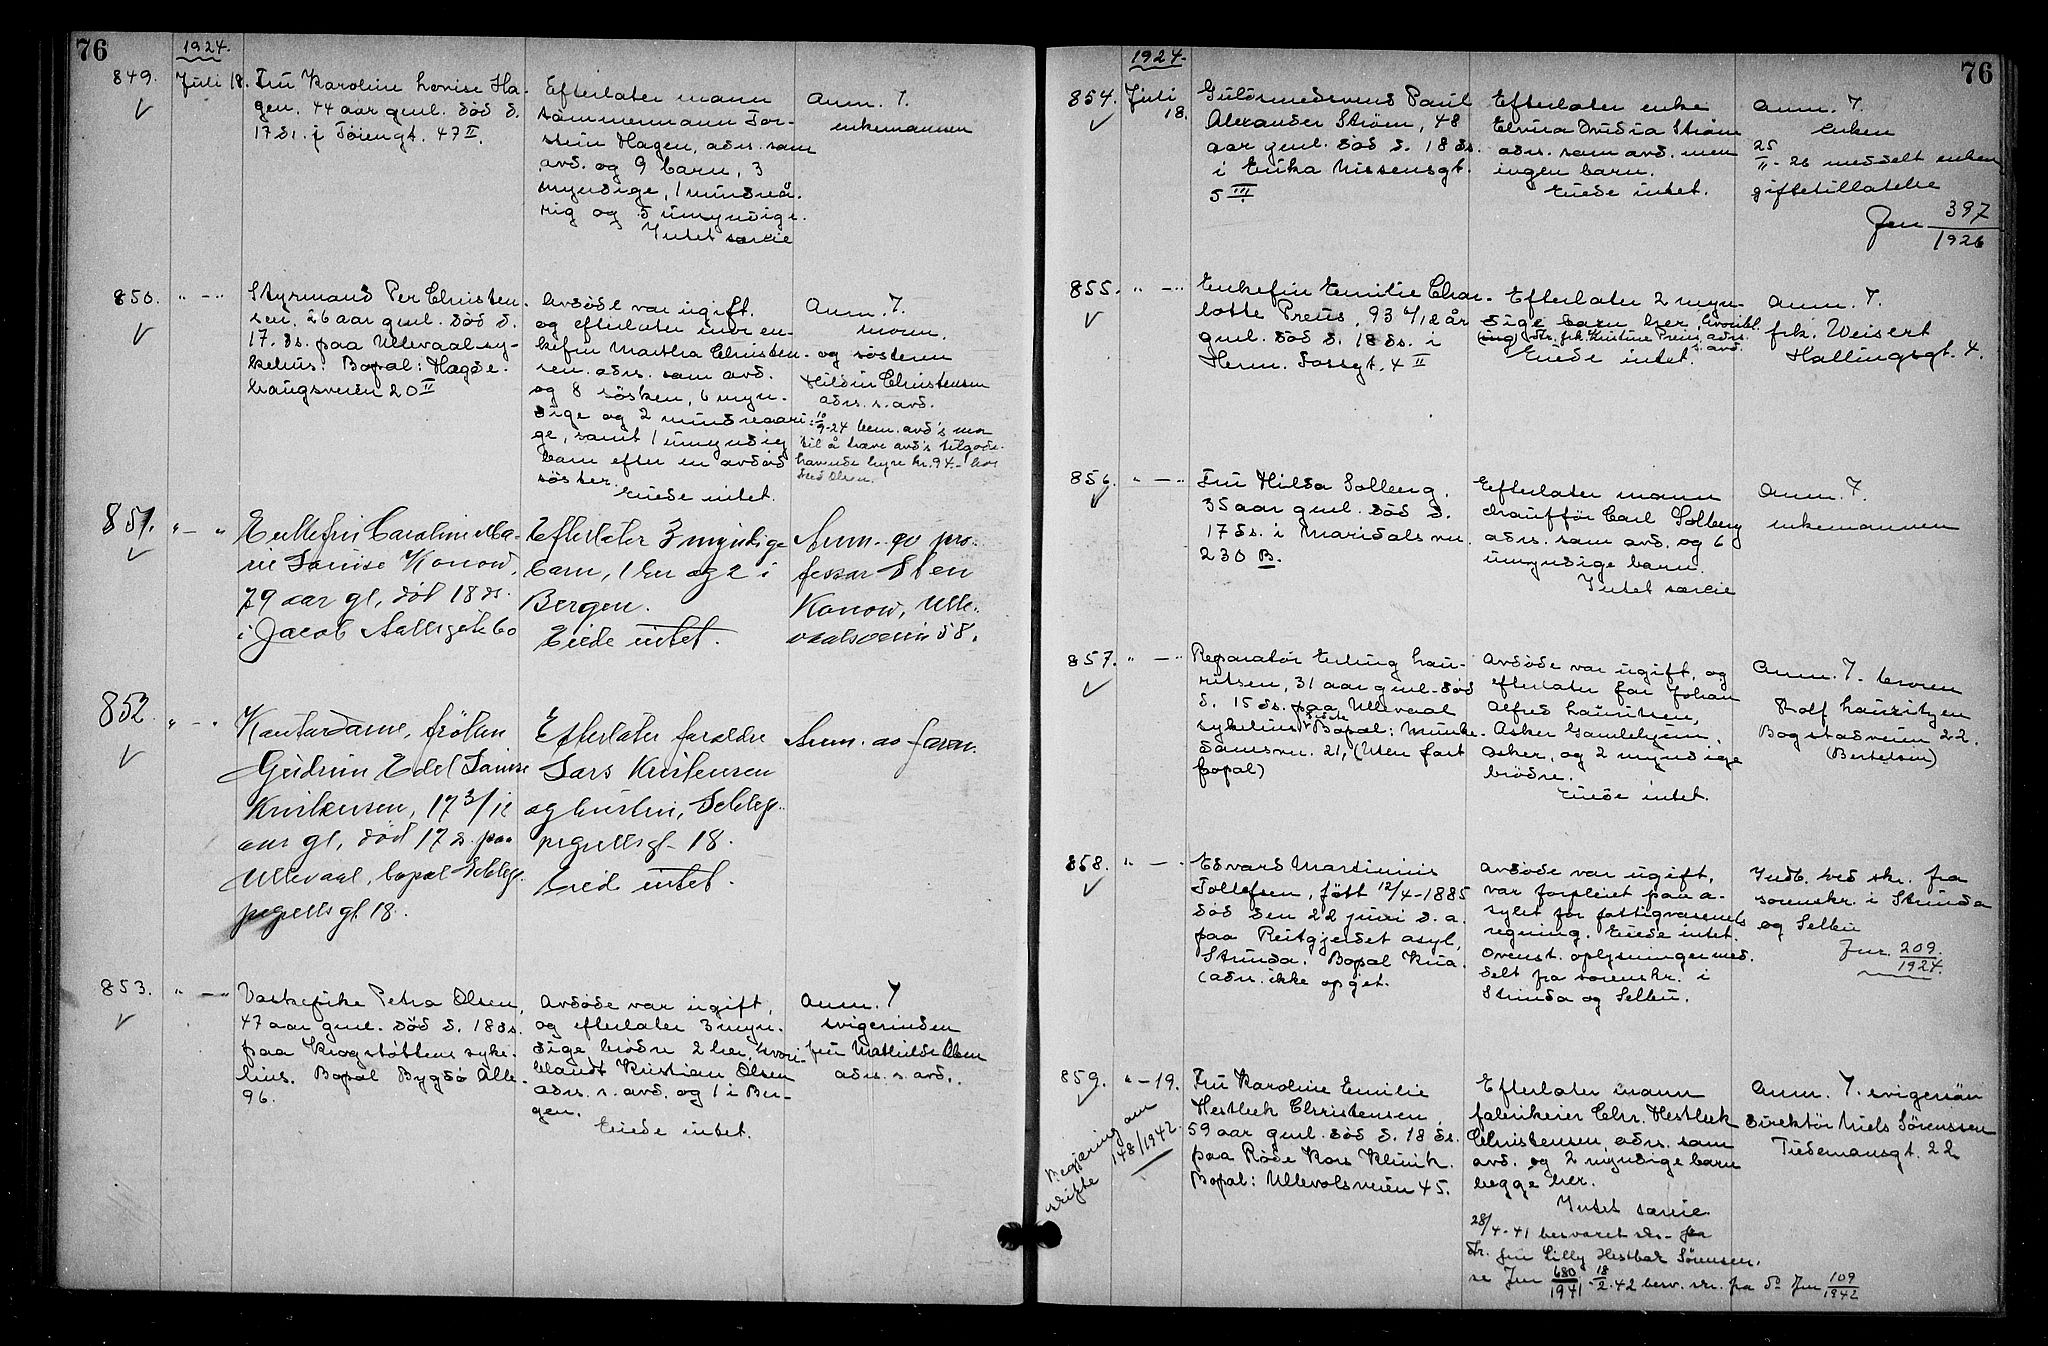 76
1924.
849.
Juli 18.
Fru Karoline Lovise Ha-
gen, 44 aar gml. død d.
17 ds. i Tøiengt. 47 II.
Efterlater mann
tömmermann Tor-
stein Hagen, adrs. som
avd. og 9 barn, 3
myndige, 1 mindreå-
rig og 5 umyndige.
Intet særeie
Anm. 7.
enkemannen
850.
" — "
Styrmand Per Christen-
sen, 26 aar gml. død d.
17. ds. paa Ullevaal sy-
kehus. Bopal: Hægde-
haugsveien 20 II
Avdøde var ugift.
og efterlater mor en-
kefru Martha Christen-
sen. adrs. som avd.
og 8 søsken, 6 myn-
dige og 2 mindreaari-
ge, samt 1 umyndig
barn efter en avdød
søster.
Eiede intet.
Anm. 7.
moren.
og søsteren
Christensen
adrs. s. avd.
10/9-24 bem. avd's mor
til å hæve avd's tilgode-
havende hyre kr. 94.- hos
Fred Olsen.
851.
" — "
Enkefru Caroline Ma-
rie Louise Konow,
79 aar gl, død 18 ds.
i Jacob Aallsgate 60
Efterlater 3 myndige
barn, 1 her og 2 i
Bergen.
Eiede intet.
Anm. av pro-
fessor Sten
Konow, Ulle-
vaalsveien 58.
852.
" — "
Kontordame, frøken
Gudrun Edel Louise
Kristensen, 17 3/12
aar gl, død 17 ds. paa
Ullevaal, bopal Schlep-
pegrells gt 18.
Efterlater foreldre
Lars Kristensen
og hustru, Schlep-
pegrellsgt 18.
Eied intet.
Anm. av faren.
853.
" — "
Vaskepike Petra Olsen,
47 aar gml. død d. 18 ds.
paa Krogstøttens syke-
hus. Bopal Bygdø Alle-
96.
Avdøde var ugift,
og efterlater 3 myn-
dige brødre 2 her, hvori-
blandt Kristian Olsen
adrs. s. avd. og 1 i Ber-
gen.
Eiede intet.
Anm. 7
svigerinden
fru Mathilde Olsen
adrs. s. avd..
76
1924.
854.
Juli
18.
Guldsmedsvend Paul
Alexander Strøm, 48
aar gml. død d. 18 ds.
i Erika Nissensgt.
5 III.
Efterlater enke
Elvira Strøm
adrs. som avd. men
ingen barn.
Eiede intet.
Anm. 7.
enken
25
II - 26 meddelt enken
giftetillatelse
Jnr 397
1926
855.
" — "
Enkefru Emilie Char-
lotte Preus, 93 6/12 år
gml. død d. 18 ds. i
Herm. Fossgt. 4 II
Efterlater 2 myn-
dige barn her, hvoribl.
dtr. frk. Kristine Preus, adrs.
s. avd.
Eiede intet.
Anm. 7.
frk. Weisert
Hallingsgt. 4.
856.
" — "
Fru Hilda Solberg,
35 aar gml. død d.
17 ds. i Maridalsvn.
230 B.
Efterlater mann
chauffør Carl Solberg
adrs. som avd. og 6
umyndige barn.
Intet særeie
Anm. 7.
enkemannen
857.
" — "
Reparatør Erling Lau-
ritsen, 31 aar gml. død
d. 15 ds. paa Ullevaal
sykehus. Sidste Bopal: Munke-
damsvn. 21, (Uten fast
bopal)
Avdøde var ugift, og
efterlater far Johan
Alfred Lauritsen,
Asker Gamlehjem,
Asker, og 2 myndige
brødre.
Eiede intet.
Anm. 7. broren
Rolf Lauritzen
Bogstadveien 22.
(Bertelsen)
858.
" — "
Edvard Martinius
Tollefsen, født 12/4-1885
død den 22 juni d. a.
paa Reitgjerdet asyl,
Strinda. Bopal Kria.
(adrs. ikke opgit.
Avdøde var ugift,
var forpleiet paa a-
sylet for fattigvæsenets
regning. Eiede intet.
Ovenst. oplysninger med-
delt fra sorenskr. i
Strinda og Selbu.
Indb. ved skr. fra
sorenskr. i Strinda
og Selbu
Jnr. 209.
1924.
859.
" — 19.
Begjæring om
skifte 148/1942.
Fru Karoline Emilie
Hestbek Christensen
59 aar gml. død d. 18 ds.
paa Røde Kors Klinik.
Bopal: Ullevolsveien 45.
Efterlater mann
fabrikeier Chr. Hestbek
Christensen adrs. som
avd. og 2 myndige barn
begge her.
Intet særeie
28/4-41 besvaret skr. fra
dtr. fru Lilly Hestbek Sørensen.
se Jnr 680/1941 - 18/2. 42 besv. skr. fra do Jnr 109/1942
Anm. 7. svigersøn
direktør Niels Sørenssen
Tidemansgt. 22